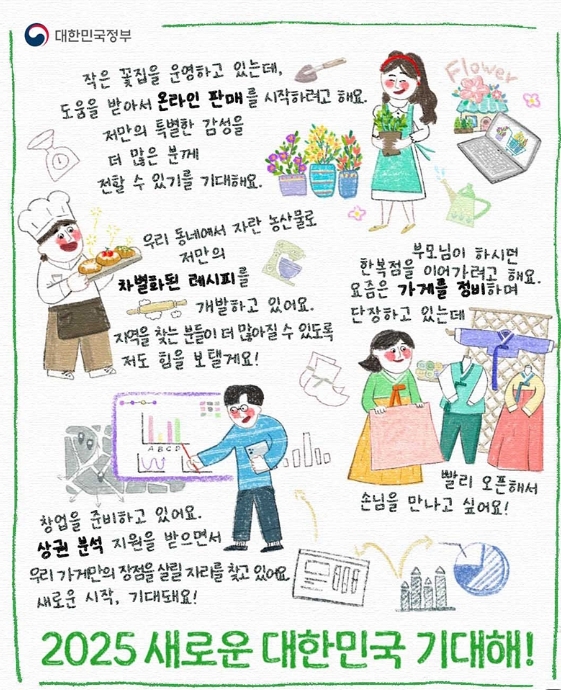 대한민국정부
작은 꽃집을 운영하고 있는데,
도움을 받아서 온라인 판매를 시작하려고 해요.
저만의 특별한 감성을
더 많은 분께
전할 수 있기를 기대해요.
Flower
우리 동네에서 자란 농산물로
저만의
차별화된 레시피를
개발하고 있어요.
지역을 찾는 분들이 더 많아질 수 있도록
저도 힘을 보탤게요!
부모님이 하시면
한복점을 이어가려고 해요.
요즘은 가게를 정비하며
단장하고 있는데
빨리 오픈해서
손님을 만나고 싶어요!
A B C D
창업을 준비하고 있어요.
상권 분석 지원을 받으면서
우리 가게만의 장점을 살릴 자리를 찾고 있어요
새로운 시작, 기대돼요!
2025 새로운 대한민국 기대해!